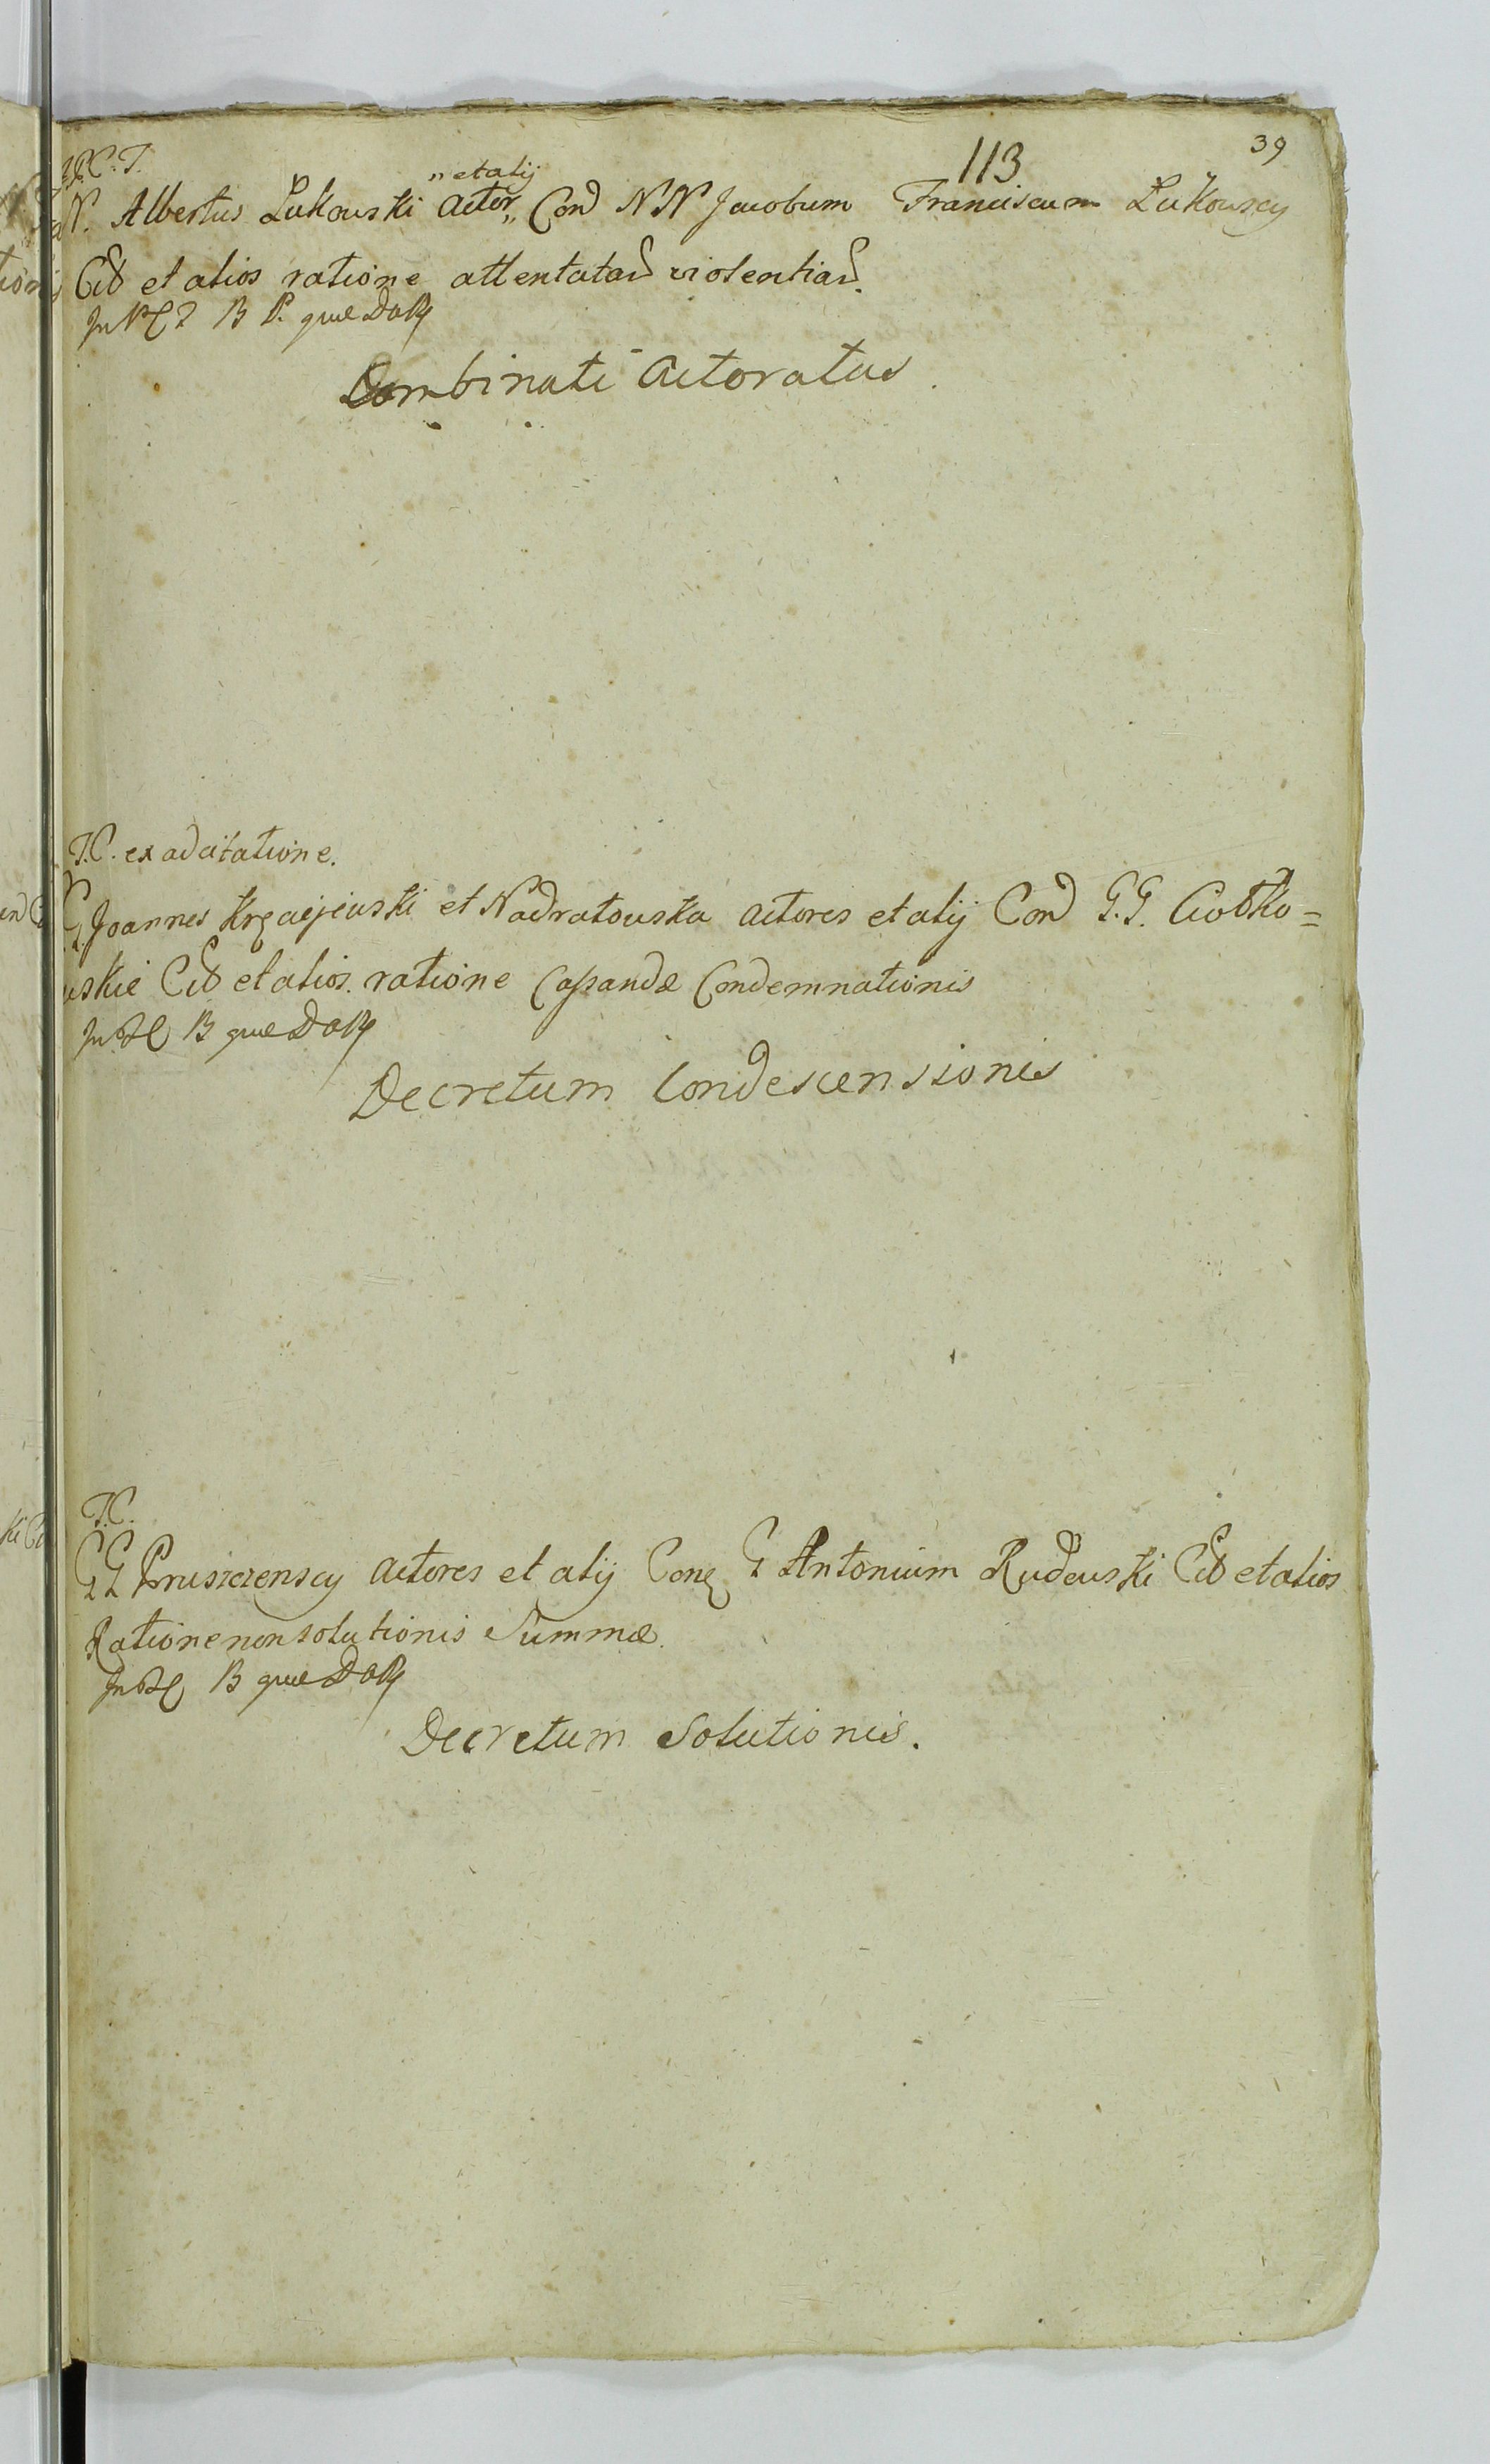 113 39
P. C. T.
N. Albertus Łukowski Actor „ et alij Con̄ NN Jacobum Franciscum Łukowscy
Cit̄ et alios ratione attentatar̄ violentiar̄.
B P. quæ
Combinati Actoratus.
T. C. ex adcitatione.
G. Joannes et Nadratowska actores et alij Con̄ G. G. Ciołko=
wskie Cit̄ et alios ratione Cassandæ Condemnationis
B quæ
Decretum Condescensionis
T. C.
GG Pruszczenscy Actores et alij G Antonium Rudowski Cit̄ et alios
Ratione non solutionis Summæ.
B quæ
Decretum Solutionis.